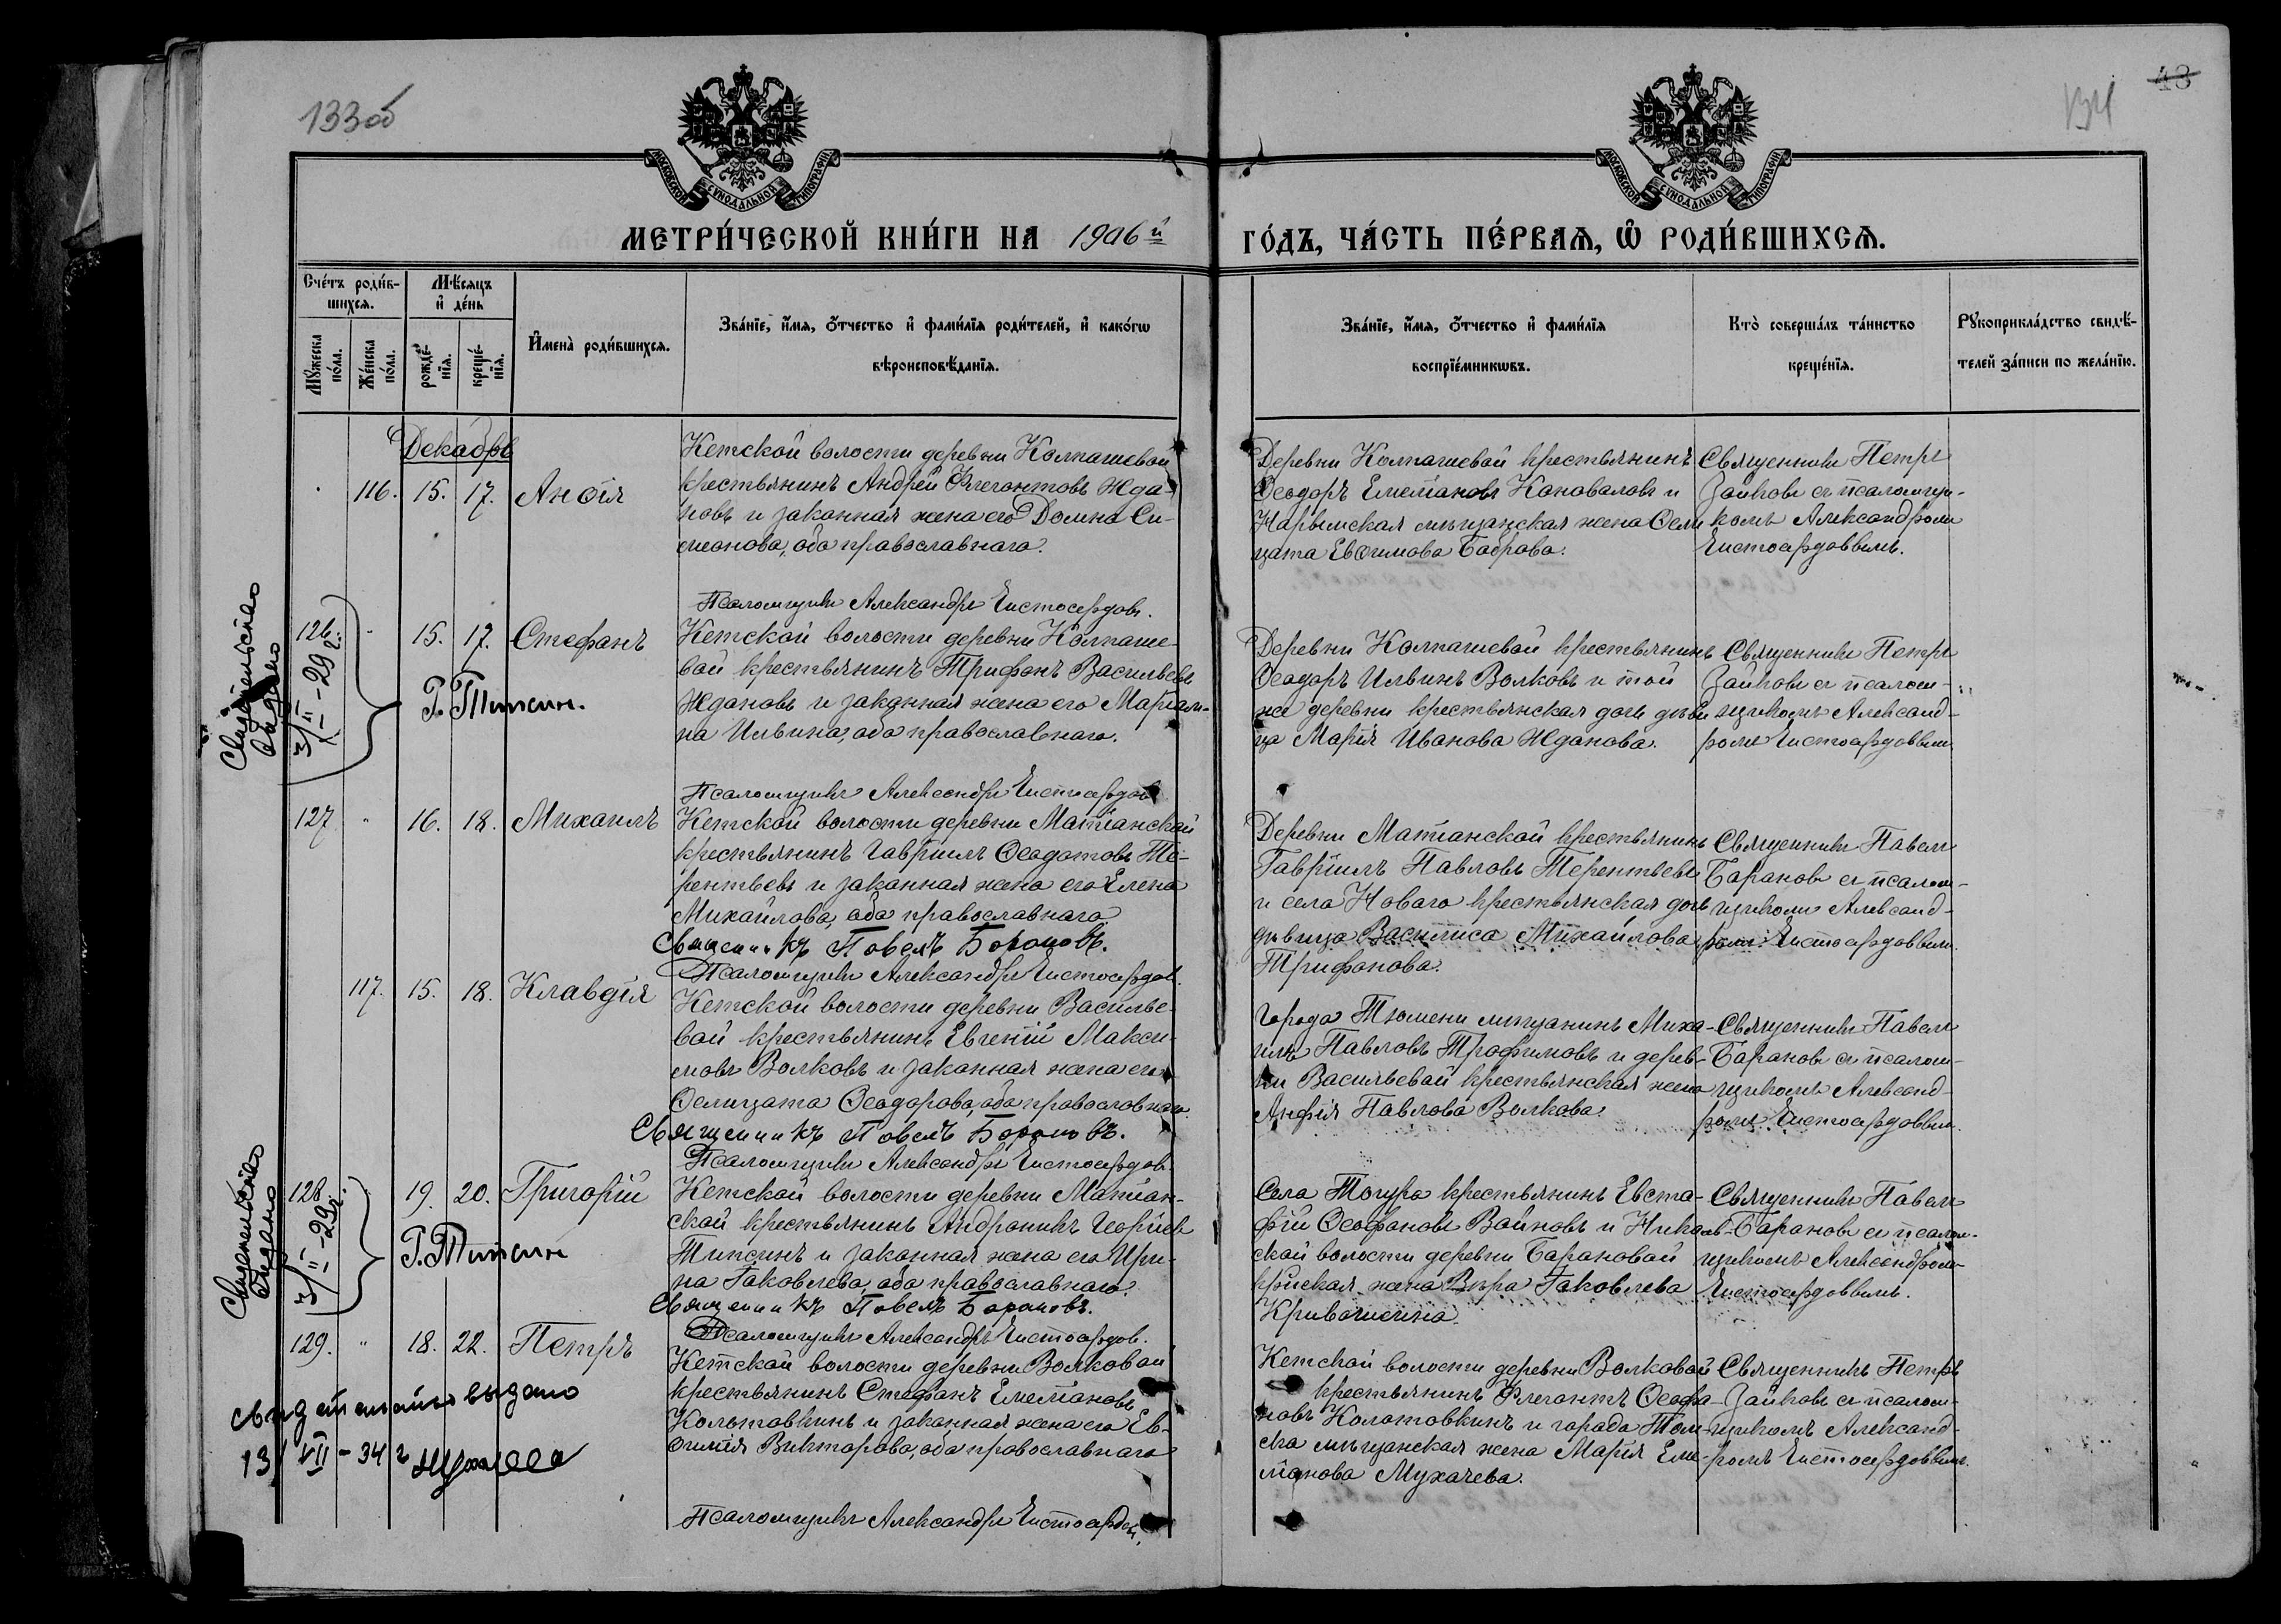 133об
134
43
МОСКОВСКОЙ СѴНОДАЛЬНОЙ ТИПОГРАФІИ
МОСКОВСКОЙ СѴНОДАЛЬНОЙ ТИПОГРАФІИ
МЕТРИ́ЧЕСКОЙ КНИ́ГИ НА 1906й
ГО́ДЪ, ЧА́СТЬ ПЕ́РВАѦ, Ѽ РОДИ́ВШИХСѦ.
Сче́тъ роди́в-
шихсѧ.
Мꙋ́жеска
по́ла.
Же́нска
по́ла.
Мѣ́сѧцъ
и҆ де́нь
рожде́-
нїѧ.
креще́-
нїѧ.
И҆мена̀ роди́вшихсѧ.
Зва́нїе, и҆́мѧ, ѻ҆́тчество и҆ фами́лїѧ роди́телей, и҆ како́гѡ
вѣроисповѣ́данїѧ.
Зва́нїе, и҆́мѧ, ѻ҆́тчество и҆ фами́лїѧ
воспрїе́мникѡвъ.
Кто̀ соверша́лъ та́инство
креще́нїѧ.
Рꙋкоприкла́дство свидѣ́-
телей за́писи по жела́нїю.
Декабрь
116. 15. 17. Анѳія
Кетской волости деревни Колпашевой
крестьянинъ Андрей Флегонтовъ Жда-
новъ и законная жена его Домна Си-
меонова, оба православнаго.
Псаломщикъ Александръ Чистосердовъ.
Деревни Колпашевой крестьянинъ
Ѳеодоръ Емеліановъ Коноваловъ и
Нарымская мѣщанская жена Ѳели
цата Евѳимова Боброва.
Священникъ Петръ
Зайковъ съ псаломщи-
комъ Александромъ
Чистосердовымъ.
126. " 15. 17. Стефанъ
Свидетельство
выдано
3/II-29 г.
Г. Типсин.
Кетской волости деревни Колпаше-
вой крестьянинъ Трифонъ Васильевъ
Ждановъ и законная жена его Маріам-
на Ильина, оба православнаго.
Псаломщикъ Александръ Чистосердовъ
Деревни Колпашевой крестьянинъ
Ѳеодоръ Ильинъ Волковъ и той
же деревни крестьянская дочь дѣви
ца Марія Иванова Жданова.
Священникъ Петръ
Зайковъ съ псалом-
щикомъ Александ-
ромъ Чистосердовымъ
127 " 16. 18. Михаилъ
Кетской волости деревни Матіанской
крестьянинъ Гавріилъ Ѳеодотовъ Те-
рентьевъ и законная жена его Елена
Михайлова, оба православнаго
Священникъ Павелъ Барановъ.
Псаломщикъ Александръ Чистосердов.
Деревни Матіанской крестьянинъ
Гавріилъ Павловъ Терентьевъ
и села Новаго крестьянская дочь
дѣвица Василиса Михайлова
Трифонова.
Священникъ Павелъ
Барановъ съ псалом-
щикомъ Александ-
ромъ Чистосердовымъ.
117. 15. 18. Клавдія
Кетской волости деревни Василье-
вой крестьянинъ Евгеній Макси-
мовъ Волковъ и законная жена его
Ѳелицата Ѳеодорова, оба православнаго.
Священникъ Павелъ Барановъ.
Псаломщикъ Александръ Чистосердов.
Города Тюмени мѣщанинъ Миха-
илъ Павловъ Трофимовъ и дерев-
ни Васильевой крестьянская жена
Анфія Павлова Волкова.
Священникъ Павелъ
Барановъ съ псалом-
щикомъ Александ-
ромъ Чистосердовым.
128 19. 20. Григорій
Свидетельство
выдано
3/II-29 г.
Г. Типсин
Кетской волости деревни Матіан-
ской крестьянинъ Андроникъ Георгіевъ
Типсинъ и законная жена его Ири-
на Іаковлева, оба православнаго.
Священникъ Павелъ Барановъ.
Псаломщикъ Александръ Чистосердов.
Села Тогура крестьянинъ Евста-
фій Ѳеофановъ Войновъ и Николь-
ской волости деревни Барановой
кр-нская жена Вѣра Іаковлева
Кривошеина.
Священникъ Павелъ
Барановъ съ псалом-
щикомъ Александромъ
Чистосердовымъ.
129. " 18. 22. Петръ
свидетельство выдано
13/VII-34 г
Кетской волости деревни Волковой
крестьянинъ Стефанъ Емеліановъ
Колотовкинъ и законная жена его Ев-
ѳимія Викторова, оба православнаго
Псаломщикъ Александръ Чистосердов.
Кетской волости деревни Волковой
крестьянинъ Флегонтъ Ѳеофа-
новъ Колотовкинъ и города Том-
ска мѣщанская жена Марія Еме-
ліанова Мухачева.
Священникъ Петръ
Зайковъ съ псалом-
щикомъ Александ-
ромъ Чистосердовымъ.